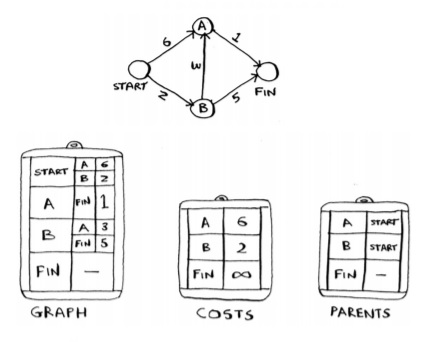 A
6
1
3
START
2
B
5
FIN
START A 6
B 2
A FIN 1
B A 3
FIN 5
FIN —
GRAPH
A 6
B 2
FIN ∞
COSTS
A START
B START
FIN -
PARENTS